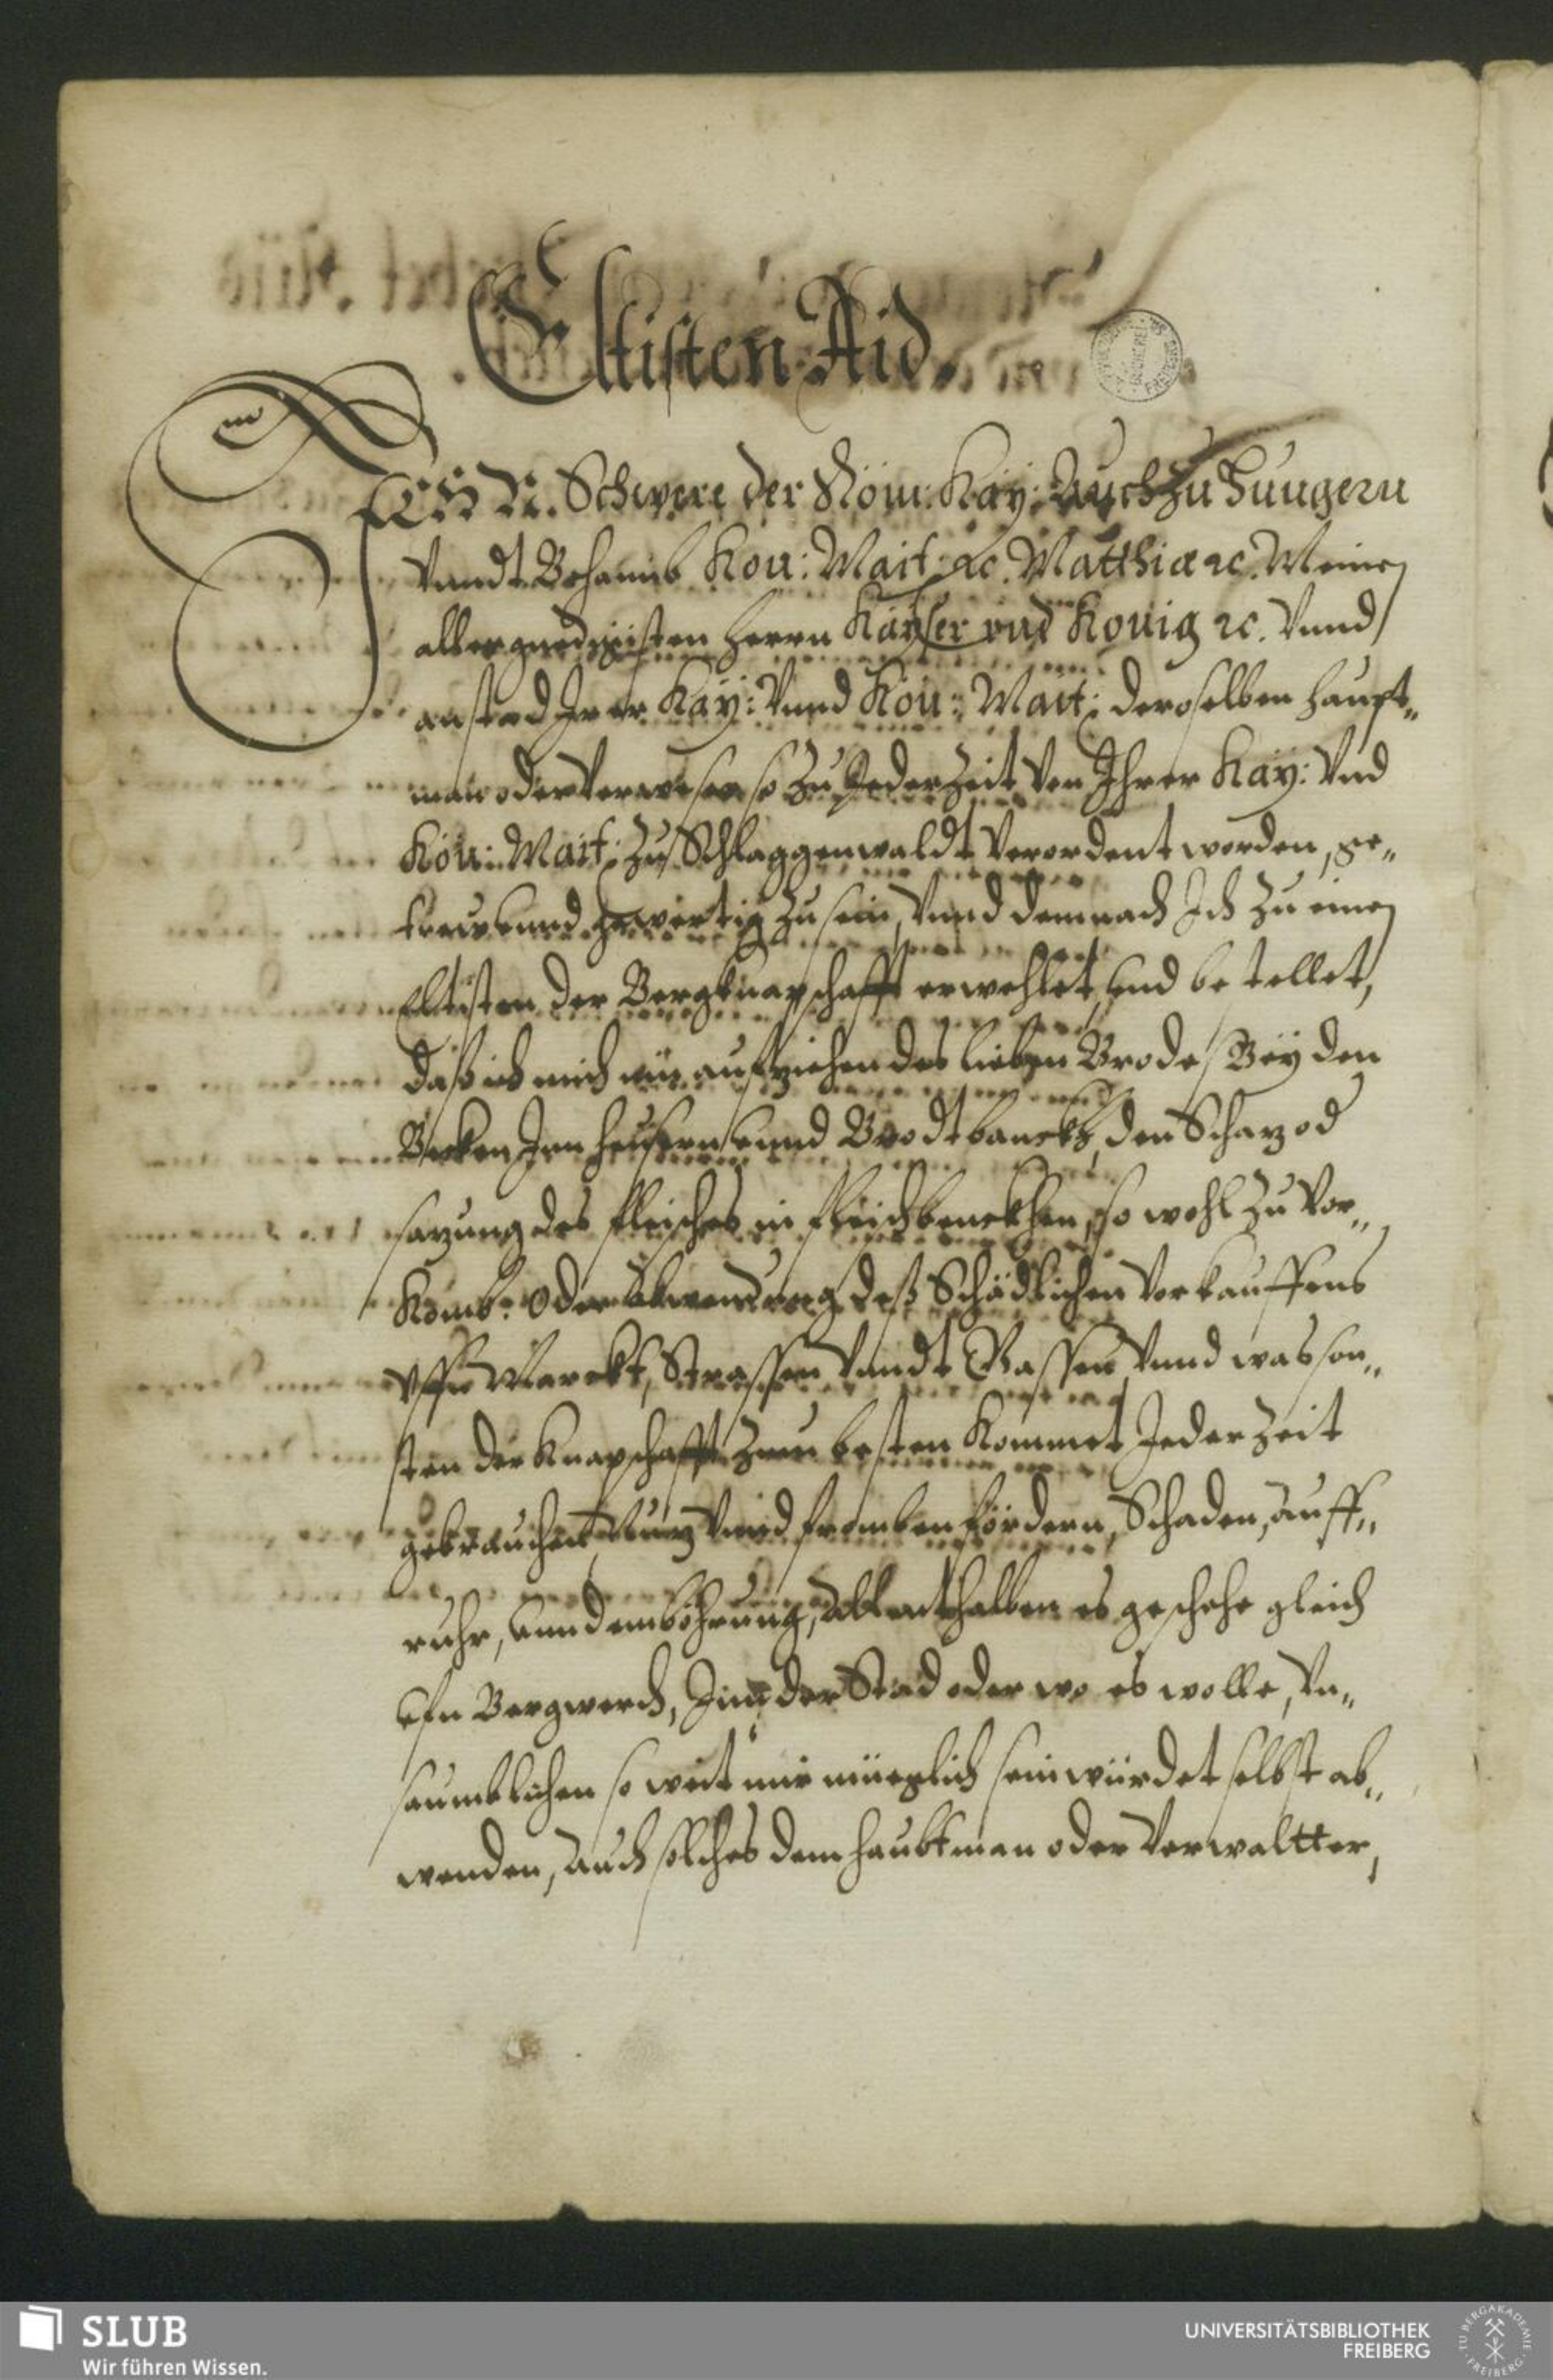 Eltisten Aid.
ICH N. Schwere der Röm: Kay: Auch zu Hungern
Vnndt Behamb Kön: Mait: ec. Matthiæ ec. Meinen
allergnedigisten Herrn Kayser vnd König ec. Vnnd
anstad Irer Kay: Vnnd Kön: Mait: deroselben Haupt„
man oder Verweser so zu Jederzeit Von Ihrer Kay: Vnd
Kön: Mait: zu Schlaggenwaldt Verordent werden, ge„
trew vnnd gewertig zu sein, Vnnd demnach Ich zu einen
Eltisten der Bergknapschafft erwehlet, vnd bestellet,
Das ich mich im aufziehen des lieben Brodes Bey den
Becken Inn Heusern vnnd Brodtbanckh, den Schaz od
sazung des fleisches in fleischbenckhen, so wohl zu Vor„
Komb: Oder Abwendung deß Schädlichen Vorkauffens
vffn Marckt, Strassen Vnndt Gassen, Vnnd was son„
sten der Knapschafft zum besten Kommet Jederzeit
gebrauchen, Nuz Vnnd fromben fördern, Schaden, Auff„
ruhr, Vnnd emböhrung, Allenthalben es geschehe gleich
vfn Bergwerch, Inn der Stad oder wo es wolle, Vn„
saumblichen so weit mir müeglich sein würdet selbst ab„
wenden, Auch solches dem Haubtman oder Verwaltter,
SLUB
Wir führen Wissen.
UNIVERSITÄTSBIBLIOTHEK
FREIBERG